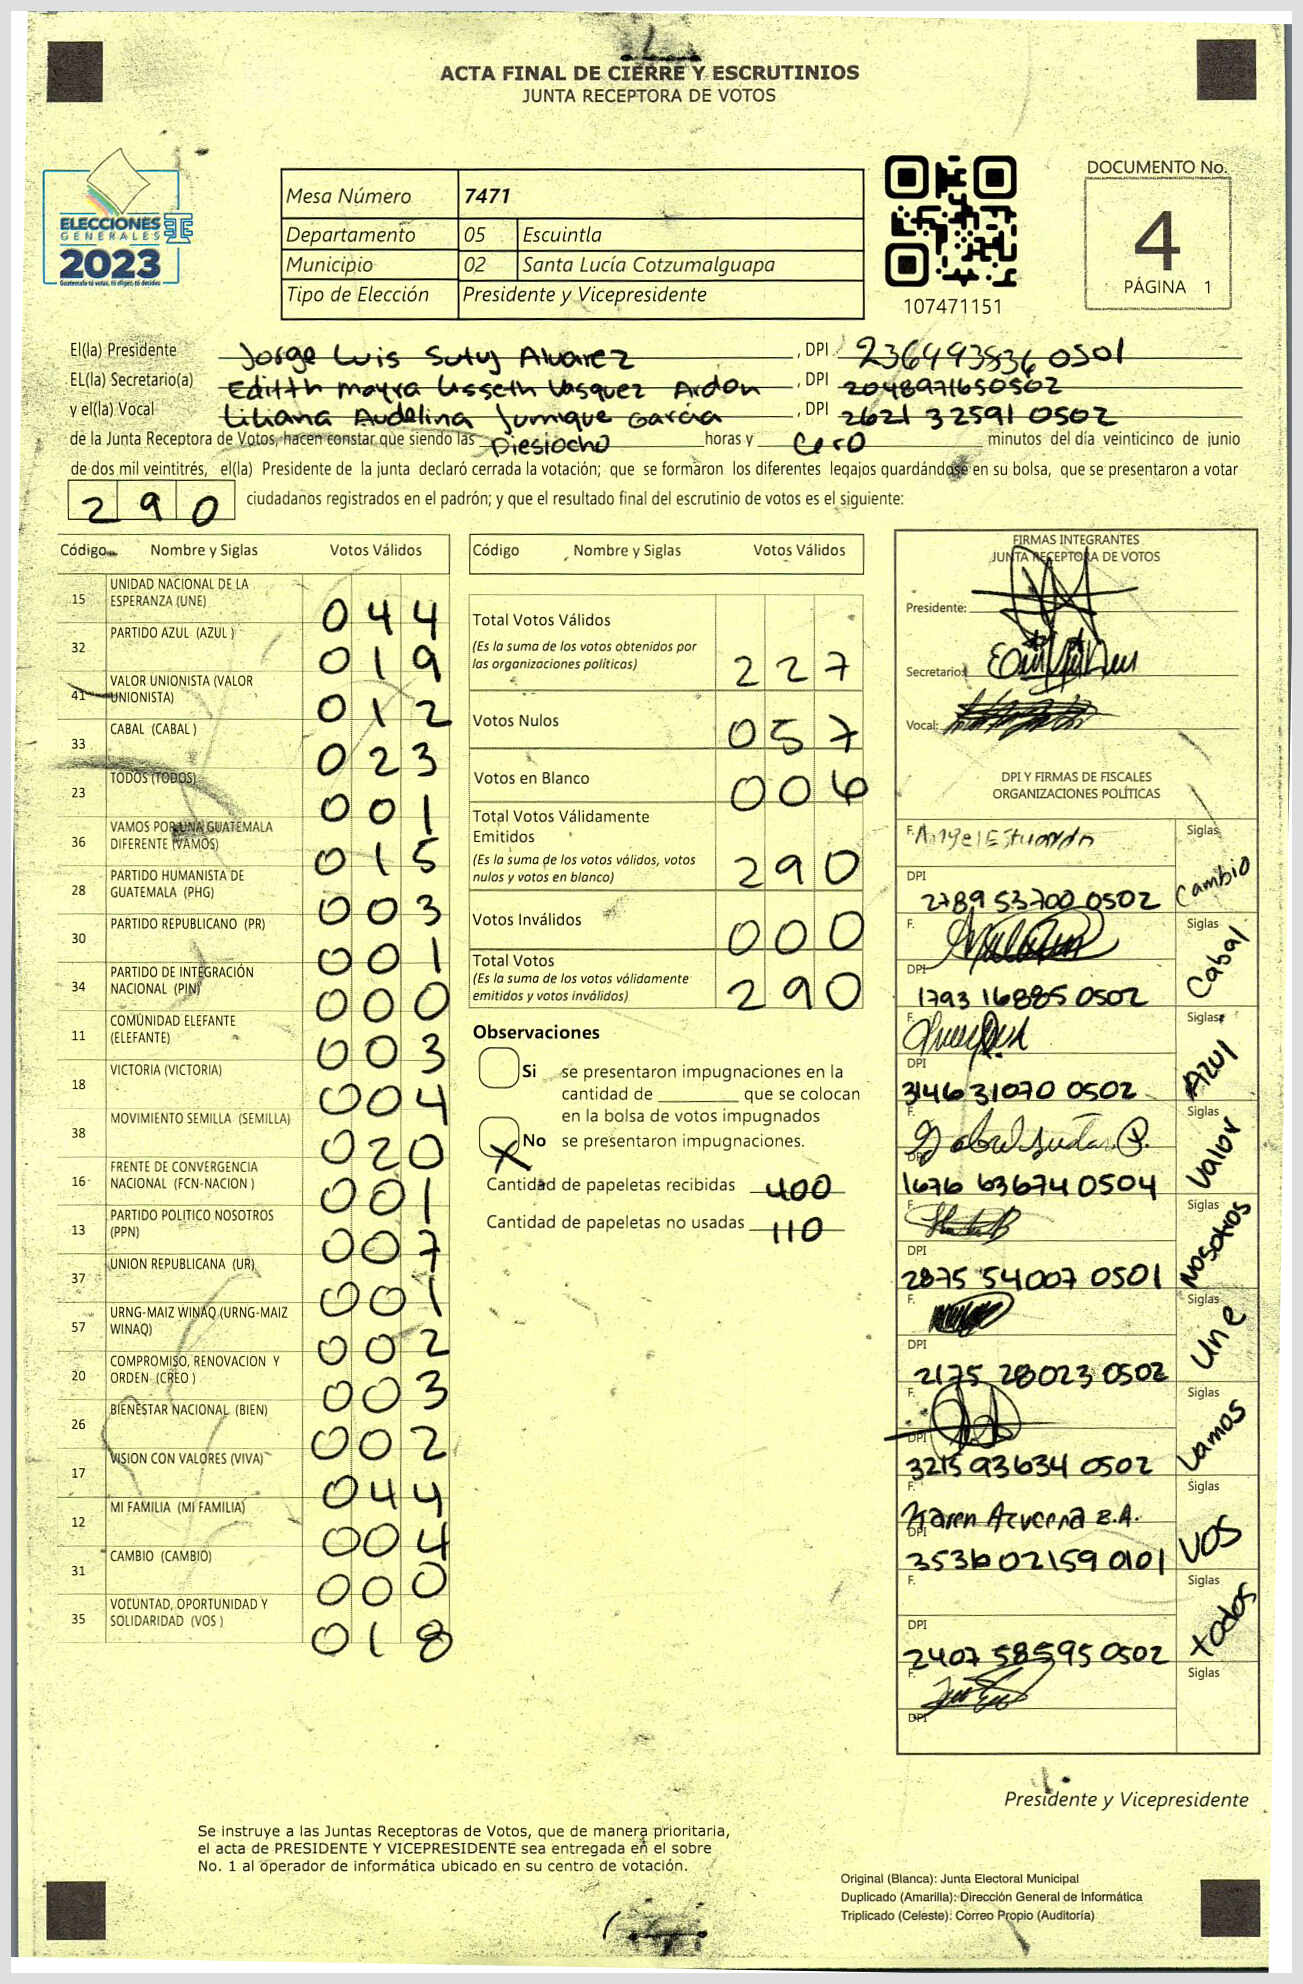 ACTA FINAL DE CIERRE Y ESCRUTINIOS
JUNTA RECEPTORA DE VOTOS
ELECCIONES
GENERALES
2023
Guatemala tú votas, tú eliges, tú decides
Mesa Número 7471
Departamento 05 Escuintla
Municipio 02 Santa Lucía Cotzumalguapa
Tipo de Elección Presidente y Vicepresidente
107471151
DOCUMENTO No.
4
PÁGINA 1
El(la) Presidente Jorge Luis Suty Alvarez, DPI 236493536 0501
EL(la) Secretario(a) Editth Mayra Lisseth Vasquez Ardon, DPI 2048971650502
y el(la) Vocal Liliana Audelina Jumique Garcia, DPI 2621 32591 0502
de la Junta Receptora de Votos, hacen constar que siendo las Diesiocho horas y cero minutos del día veinticinco de junio
de dos mil veintitrés, el(la) Presidente de la junta declaró cerrada la votación; que se formaron los diferentes legajos quardándose en su bolsa, que se presentaron a votar
290 ciudadanos registrados en el padrón; y que el resultado final del escrutinio de votos es el siguiente:
Código Nombre y Siglas Votos Válidos
15 UNIDAD NACIONAL DE LA ESPERANZA (UNE) 044
32 PARTIDO AZUL (AZUL ) 019
41 VALOR UNIONISTA (VALOR UNIONISTA) 012
33 CABAL (CABAL ) 023
23 TODOS (TODOS) 001
36 VAMOS POR UNA GUATEMALA DIFERENTE (VAMOS) 015
28 PARTIDO HUMANISTA DE GUATEMALA (PHG) 003
30 PARTIDO REPUBLICANO (PR) 001
34 PARTIDO DE INTEGRACIÓN NACIONAL (PIN) 000
11 COMUNIDAD ELEFANTE (ELEFANTE) 003
18 VICTORIA (VICTORIA) 004
38 MOVIMIENTO SEMILLA (SEMILLA) 020
16 FRENTE DE CONVERGENCIA NACIONAL (FCN-NACION ) 001
13 PARTIDO POLITICO NOSOTROS (PPN) 007
37 UNION REPUBLICANA (UR) 001
57 URNG-MAIZ WINAQ (URNG-MAIZ WINAQ) 002
20 COMPROMISO, RENOVACION Y ORDEN (CREO ) 003
26 BIENESTAR NACIONAL (BIEN) 002
17 VISION CON VALORES (VIVA) 044
12 MI FAMILIA (MI FAMILIA) 004
31 CAMBIO (CAMBIO) 000
35 VOLUNTAD, OPORTUNIDAD Y SOLIDARIDAD (VOS ) 018
Código Nombre y Siglas Votos Válidos
Total Votos Válidos
(Es la suma de los votos obtenidos por
las organizaciones políticas) 227
Votos Nulos 057
Votos en Blanco 006
Total Votos Válidamente
Emitidos
(Es la suma de los votos válidos, votos
nulos y votos en blanco) 290
Votos Inválidos 000
Total Votos
(Es la suma de los votos válidamente
emitidos y votos inválidos) 290
Observaciones
Si se presentaron impugnaciones en la
cantidad de ________ que se colocan
en la bolsa de votos impugnados
X No se presentaron impugnaciones.
Cantidad de papeletas recibidas 400
Cantidad de papeletas no usadas 110
FIRMAS INTEGRANTES
JUNTA RECEPTORA DE VOTOS
Presidente:
Secretario:
Vocal:
DPI Y FIRMAS DE FISCALES
ORGANIZACIONES POLÍTICAS
F. Angel Estuardo Siglas
DPI
2789 53700 0502 Cambio
F. Siglas
DPI
1793 16885 0502 Cabal
F. Siglas
DPI
3146 31070 0502 Azul
F. Siglas
DPI
1676 63674 0504 Valor
F. Siglas
DPI
2875 54007 0501 Nosotros
F. Siglas
DPI
2175 28023 0502 Une
F. Siglas
DPI
3215 93634 0502 Vamos
F. Karen Azucena B.A. Siglas
DPI
3536 02159 0101 VOS
F. Siglas
DPI
2407 58595 0502 todos
F. Siglas
DPI
Presidente y Vicepresidente
Se instruye a las Juntas Receptoras de Votos, que de manera prioritaria,
el acta de PRESIDENTE Y VICEPRESIDENTE sea entregada en el sobre
No. 1 al operador de informática ubicado en su centro de votación.
Original (Blanca): Junta Electoral Municipal
Duplicado (Amarilla): Dirección General de Informática
Triplicado (Celeste): Correo Propio (Auditoría)